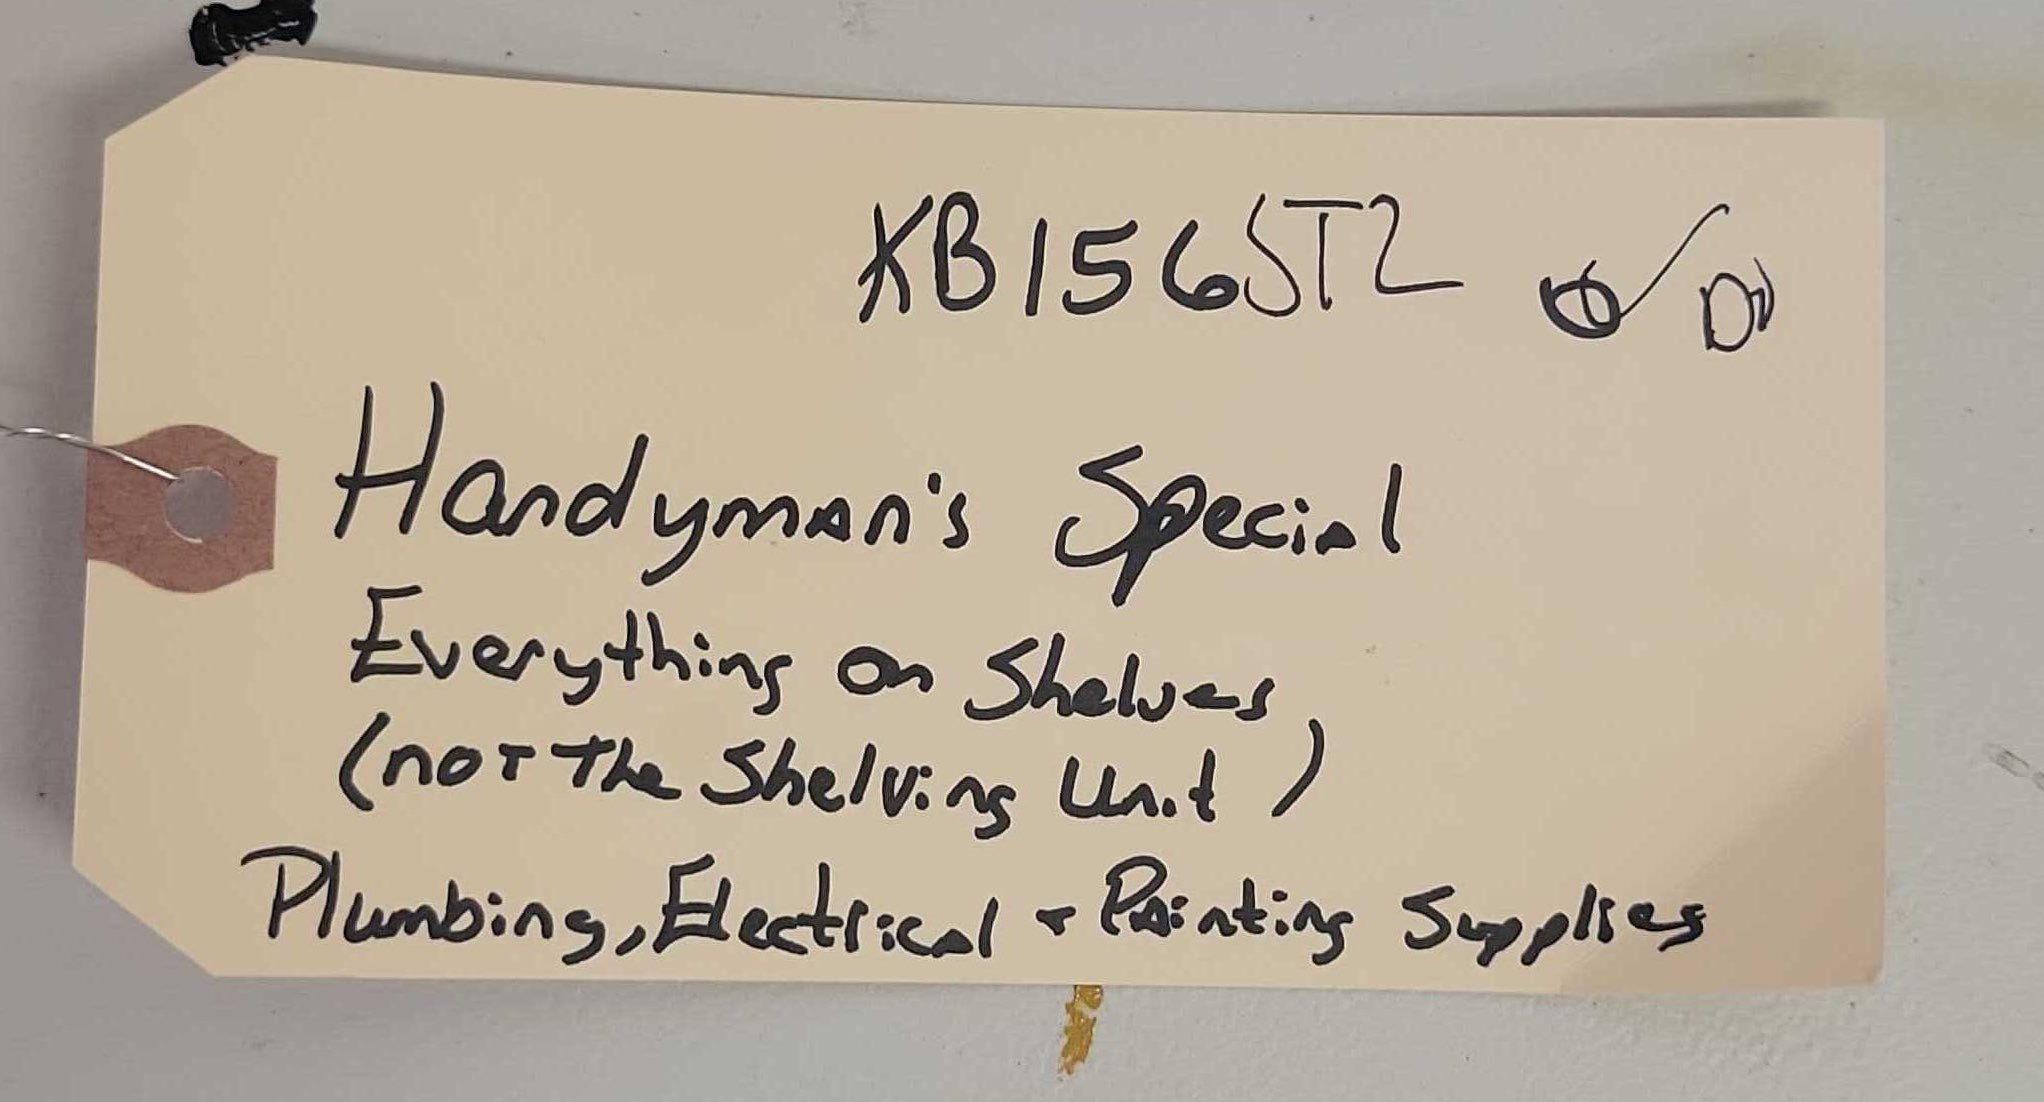 KB156STL ✓
Handyman's Special
Everything on Shelves
(not the Shelving Unit)
Plumbing, Electrical + Painting Supplies